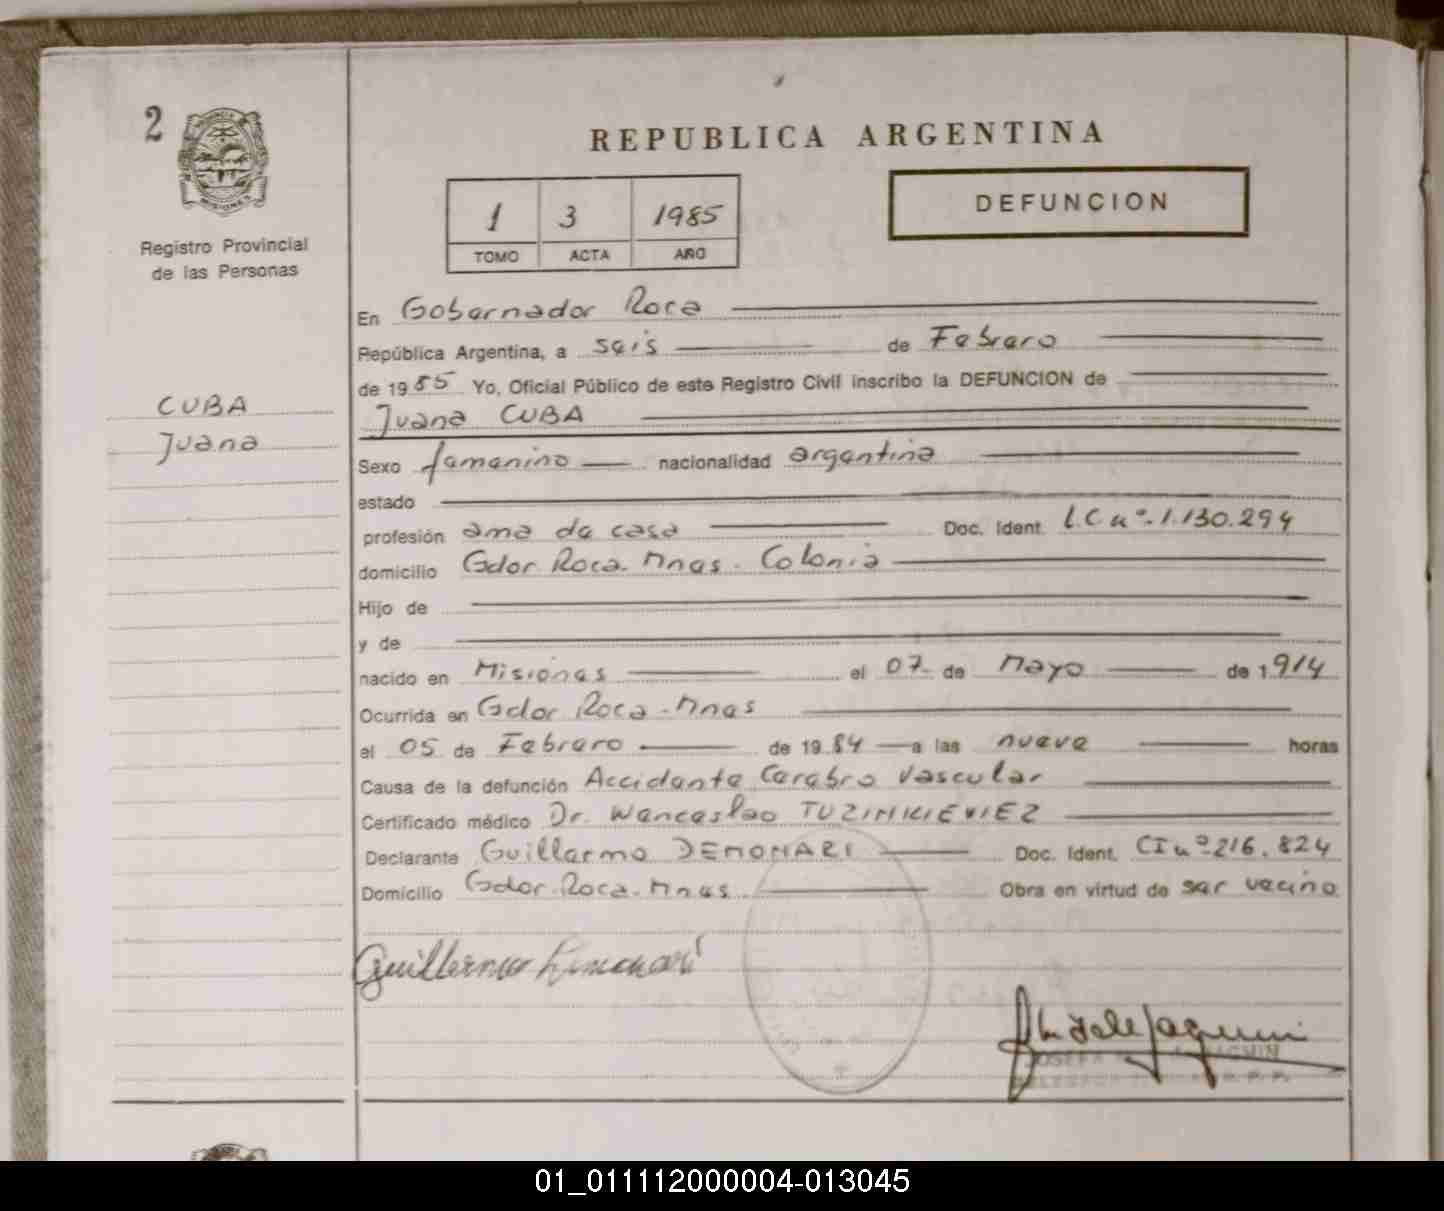 2
REPUBLICA ARGENTINA
DEFUNCION
1 3 1985
TOMO ACTA AÑO
Registro Provincial
de las Personas
CUBA
Juana
En Gobernador Roca
República Argentina, a seis de Febrero
de 1985 Yo, Oficial Público de este Registro Civil inscribo la DEFUNCION de
Juana CUBA
Sexo femenino nacionalidad argentina
estado
profesión ama de casa Doc. Ident. L.C nº. 1.130.294
domicilio Gdor Roca. Mnes. Colonia
Hijo de
y de
nacido en Misiones el 07 de Mayo de 1914
Ocurrida en Gdor Roca. Mnes
el 05 de Febrero de 1984 a las nueve horas
Causa de la defunción Accidente Cerebro Vascular
Certificado médico Dr. Wenceslao
Declarante Guillermo DEMOMARI Doc. Ident. CI nº 216.824
Domicilio Gdor. Roca. Mnes. Obra en virtud de ser vecino
Guillermo
01_011112000004-013045